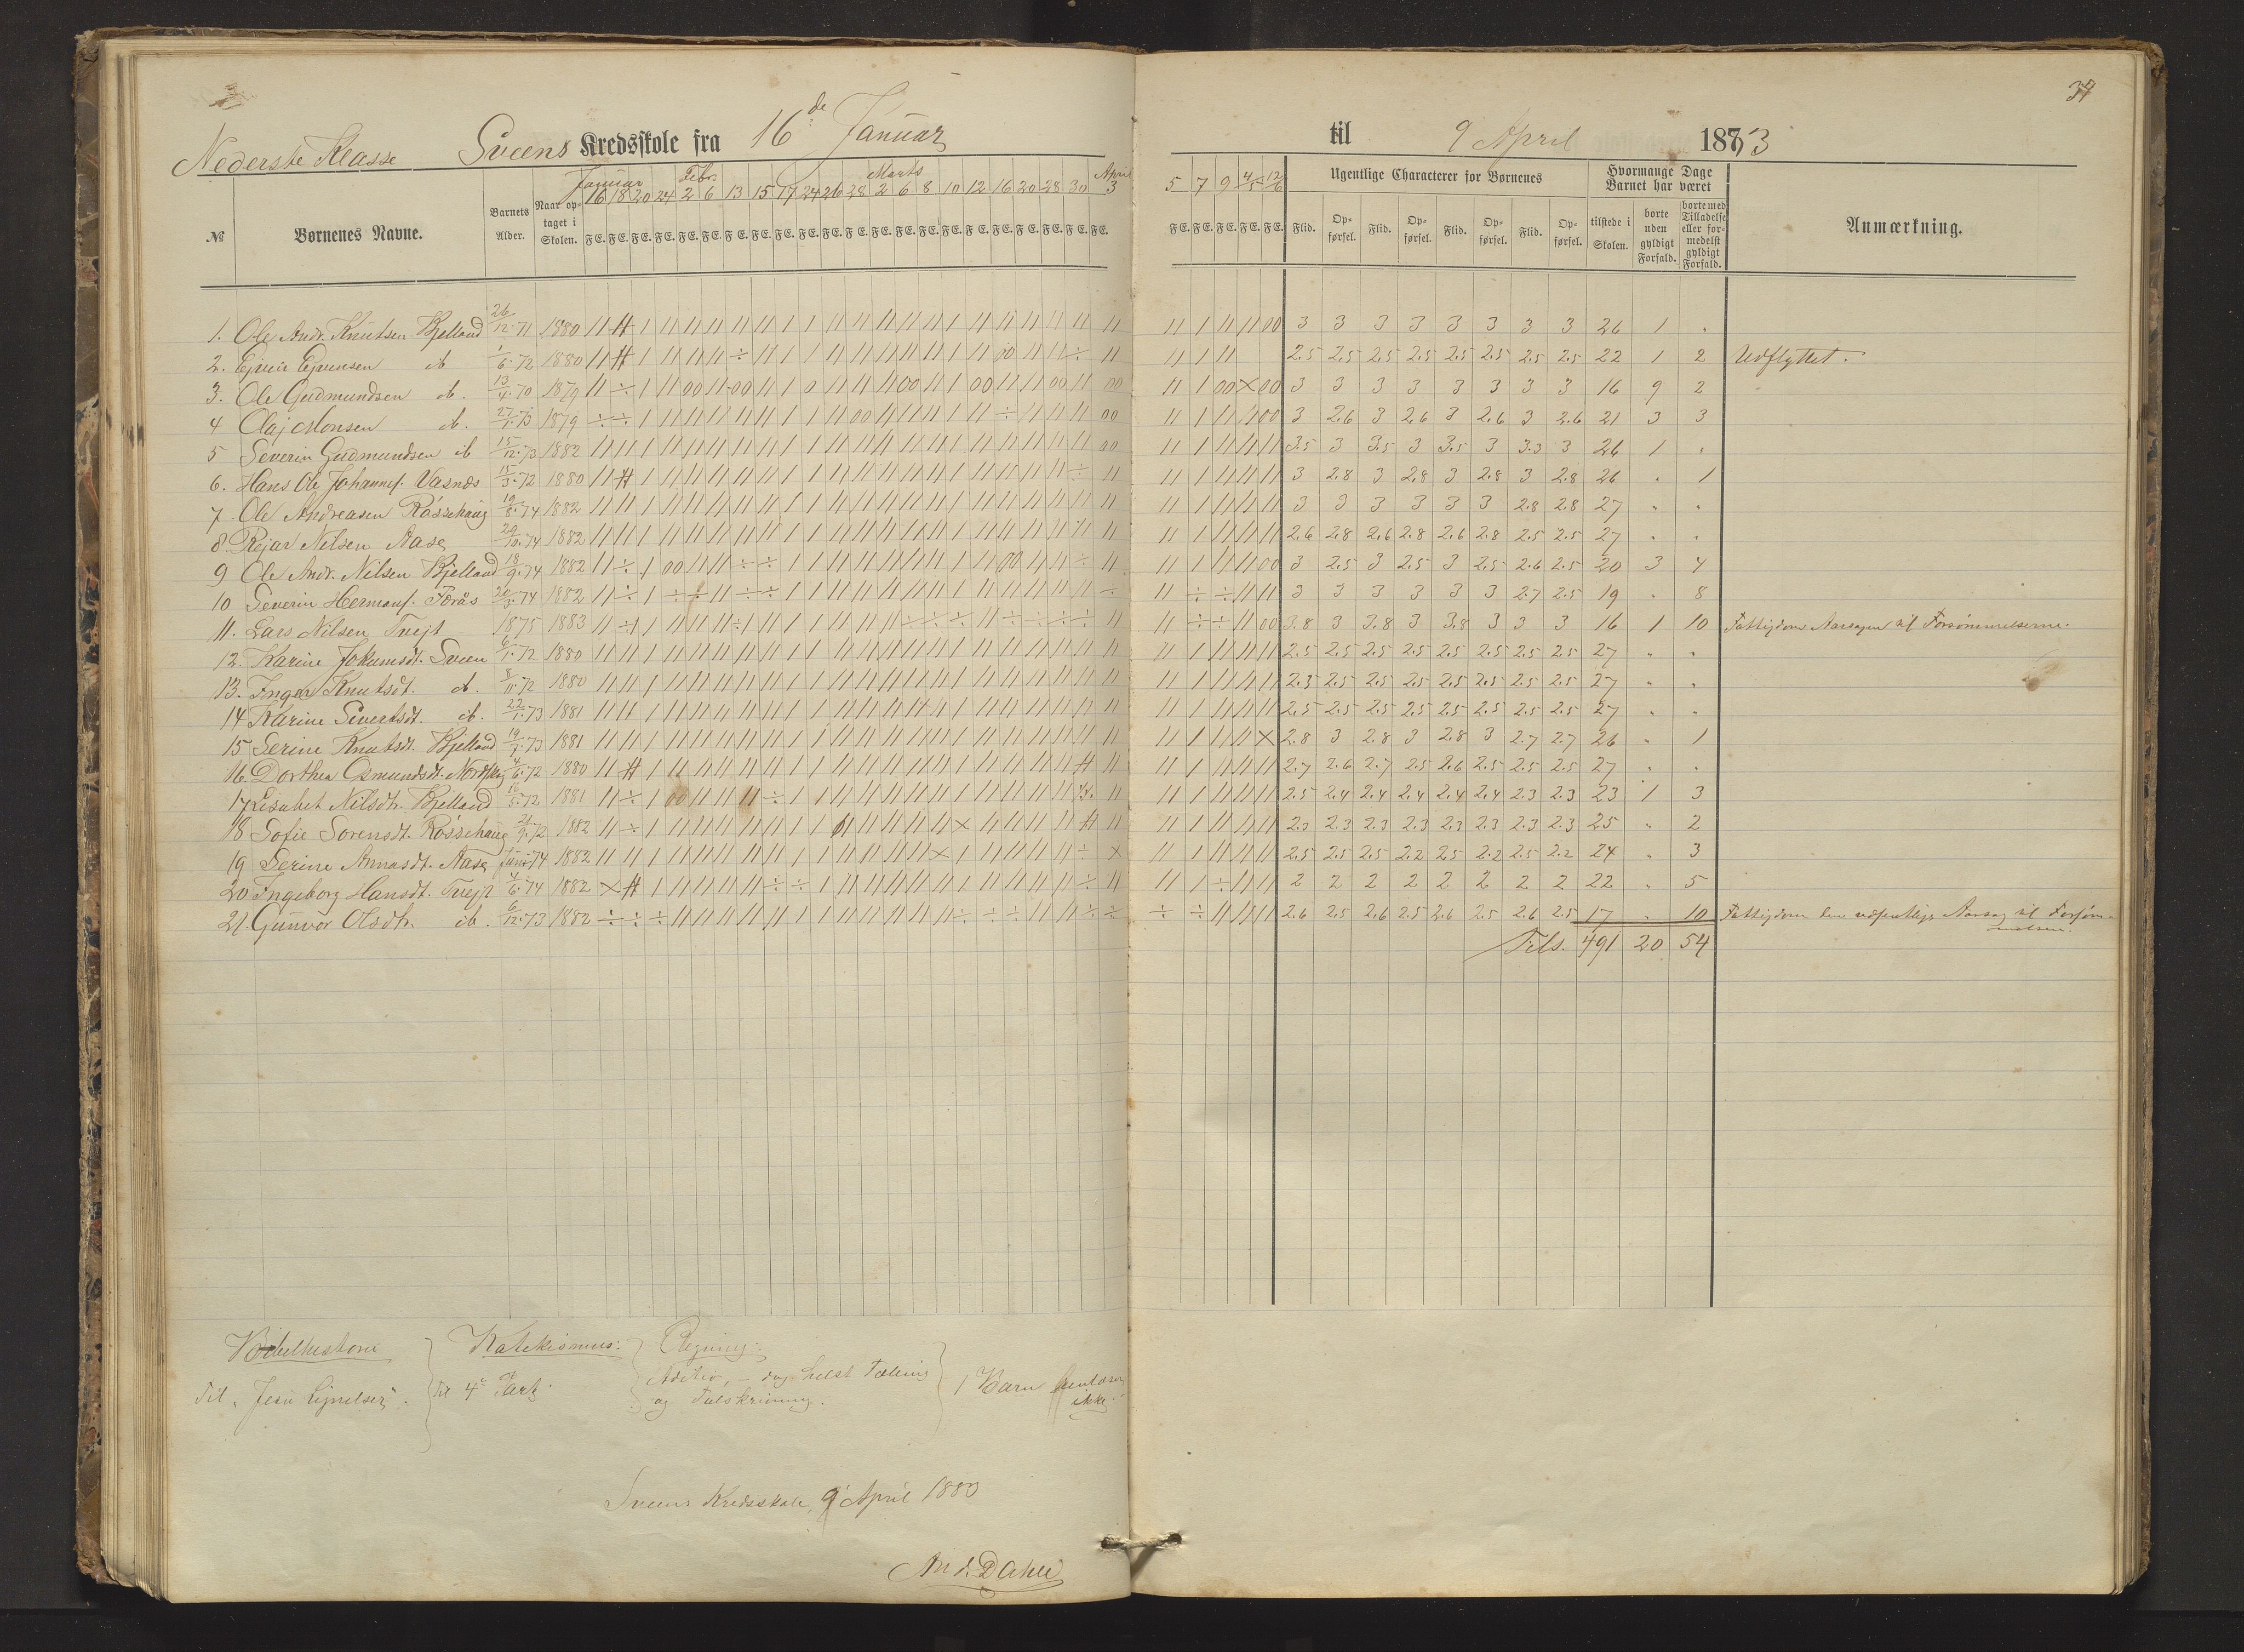 34
Nederste Klasse Sveens Kredsskole fra 16de Januar til 9 April 1883
Januar Febr. Marts April
№ Børnenes Navne. Barnets Alder. Naar optaget i Skolen. 16 18 20 24 2 6 13 15 17 24 26 28 2 6 8 10 12 16 20 28 30 3 5 7 9 4/5 12/6 Ugentlige Characterer for Børnenes Hvormange Dage Barnet har været Anmærkning.
F E. F E. F E. F E. F E. F E. F E. F E. F E. F E. F E. F E. F E. F E. F E. F E. F E. F E. F E. F E. F E. F E. F E. F E. F E. F E. F E. Flid. Opførsel. Flid. Opførsel. Flid. Opførsel. Flid. Opførsel. tilstede i Skolen. borte uden gyldigt Forfald. borte med Tilladelse eller formedelst gyldigt Forfald.
1. Ole Andr. Knutsen Bjelland 26/12.71 1880 3 3 3 3 3 3 3 3 26 1 "
2. Ejvin Ejvensen ib 1/6.72 1880 2.5 2.5 2.5 2.5 2.5 2.5 2.5 2.5 22 1 2 Udflyttet.
3. Ole Gudmundsen ib. 13/4.70 1879 3 3 3 3 3 3 3 3 16 9 2
4 Olaj Monsen ib. 27/1.73 1879 3 2.6 3 2.6 3 2.6 3 2.6 21 3 3
5 Severin Gudmundsen ib 15/12.73 1882 3.5 3 3.5 3 3.5 3 3.3 3 26 1 "
6. Hans Ole Johannes. Vasnæs 15/3.72 1880 3 2.8 3 2.8 3 2.8 3 2.8 26 " 1
7. Ole Andreasen Røssehaug 19/8.74 1882 3 3 3 3 3 3 2.8 2.8 27 " "
8. Rejar Nilsen Aase 29/10.74 1882 2.6 2.8 2.6 2.8 2.6 2.8 2.5 2.5 27 " "
9 Ole Andr. Nilsen Bjelland 18/9.74 1882 3 2.5 3 2.5 3 2.5 2.6 2.5 20 3 4
10 Severin Hermans. Torås 20/5.74 1882 3 3 3 3 3 3 2.7 2.5 19 " 8
11. Lars Nilsen Tvejt 1875 1883 3.8 3 3.8 3 3.8 3 3 3 16 1 10 Fattigdom Aarsagen til Forsømmelserne.
12. Karine Jokumsdt. Sveen 6/1.72 1880 2.5 2.5 2.5 2.5 2.5 2.5 2.5 2.5 27 " "
13. Inger Knutsdt. ib. 3/11.72 1880 2.3 2.5 2.5 2.5 2.5 2.5 2.5 2.5 27 " "
14 Karine Sivertsdt. ib. 22/1.73 1881 2.5 2.5 2.5 2.5 2.5 2.5 2.5 2.5 27 " "
15 Serine Knutsdt. Bjelland 19/1.73 1881 2.8 3 2.8 3 2.8 3 2.7 2.7 26 " 1
16. Dorthea Osmundsdt. 4/6.72 1880 2.7 2.6 2.7 2.5 2.6 2.5 2.5 2.5 27 " "
17 Lisabet Nilsdtr. Bjelland 16/5.72 1881 2.5 2.4 2.4 2.4 2.4 2.4 2.3 2.3 23 1 3
18 Sofie Sorensdt. Røssehaug 21/9.72 1882 2.3 2.3 2.3 2.3 2.3 2.3 2.3 2.3 25 " 2
19 Serine Annasdt. Aase Juni.74 1882 2.5 2.5 2.5 2.2 2.5 2.2 2.5 2.2 24 " 3
20 Ingeborg Hansdt. Tvejt 4/6.74 1882 2 2 2 2 2 2 2 2 22 " 5
21. Gunvor Olsdtr. ib. 6/12.73 1882 2.6 2.5 2.6 2.5 2.6 2.5 2.6 2.5 17 " 10 Fattigdom den væsentlige Aarsag til Forsømmelsen.
Tils. 491 20 54
Bibelhistorie Katekismus: Regning:
Til "Jesu Lignelser". til 4de Part. Aditio, — dog helst Tæling
og Talskrivning. 1 Barn ikke.
Sveens Kredsskole, 9 April 1883
And. Dahle